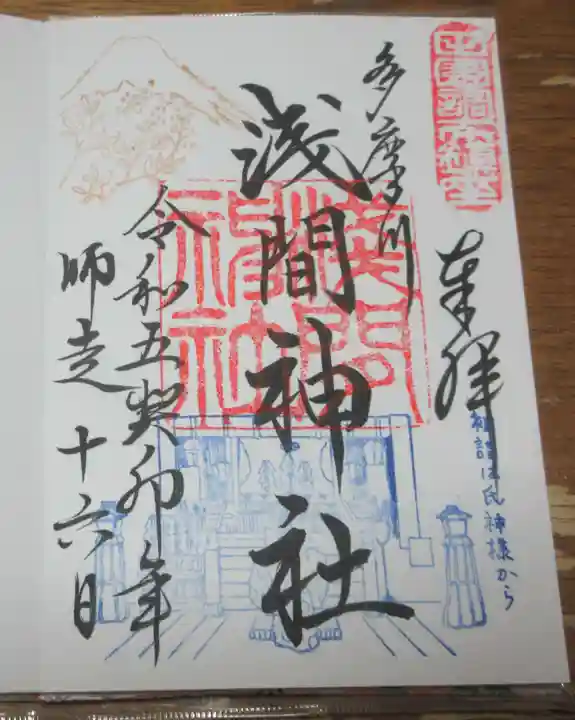 奉拝
初詣は氏神様から
多摩川
浅間神社
浅間神社
令和五癸卯年
師走十六日